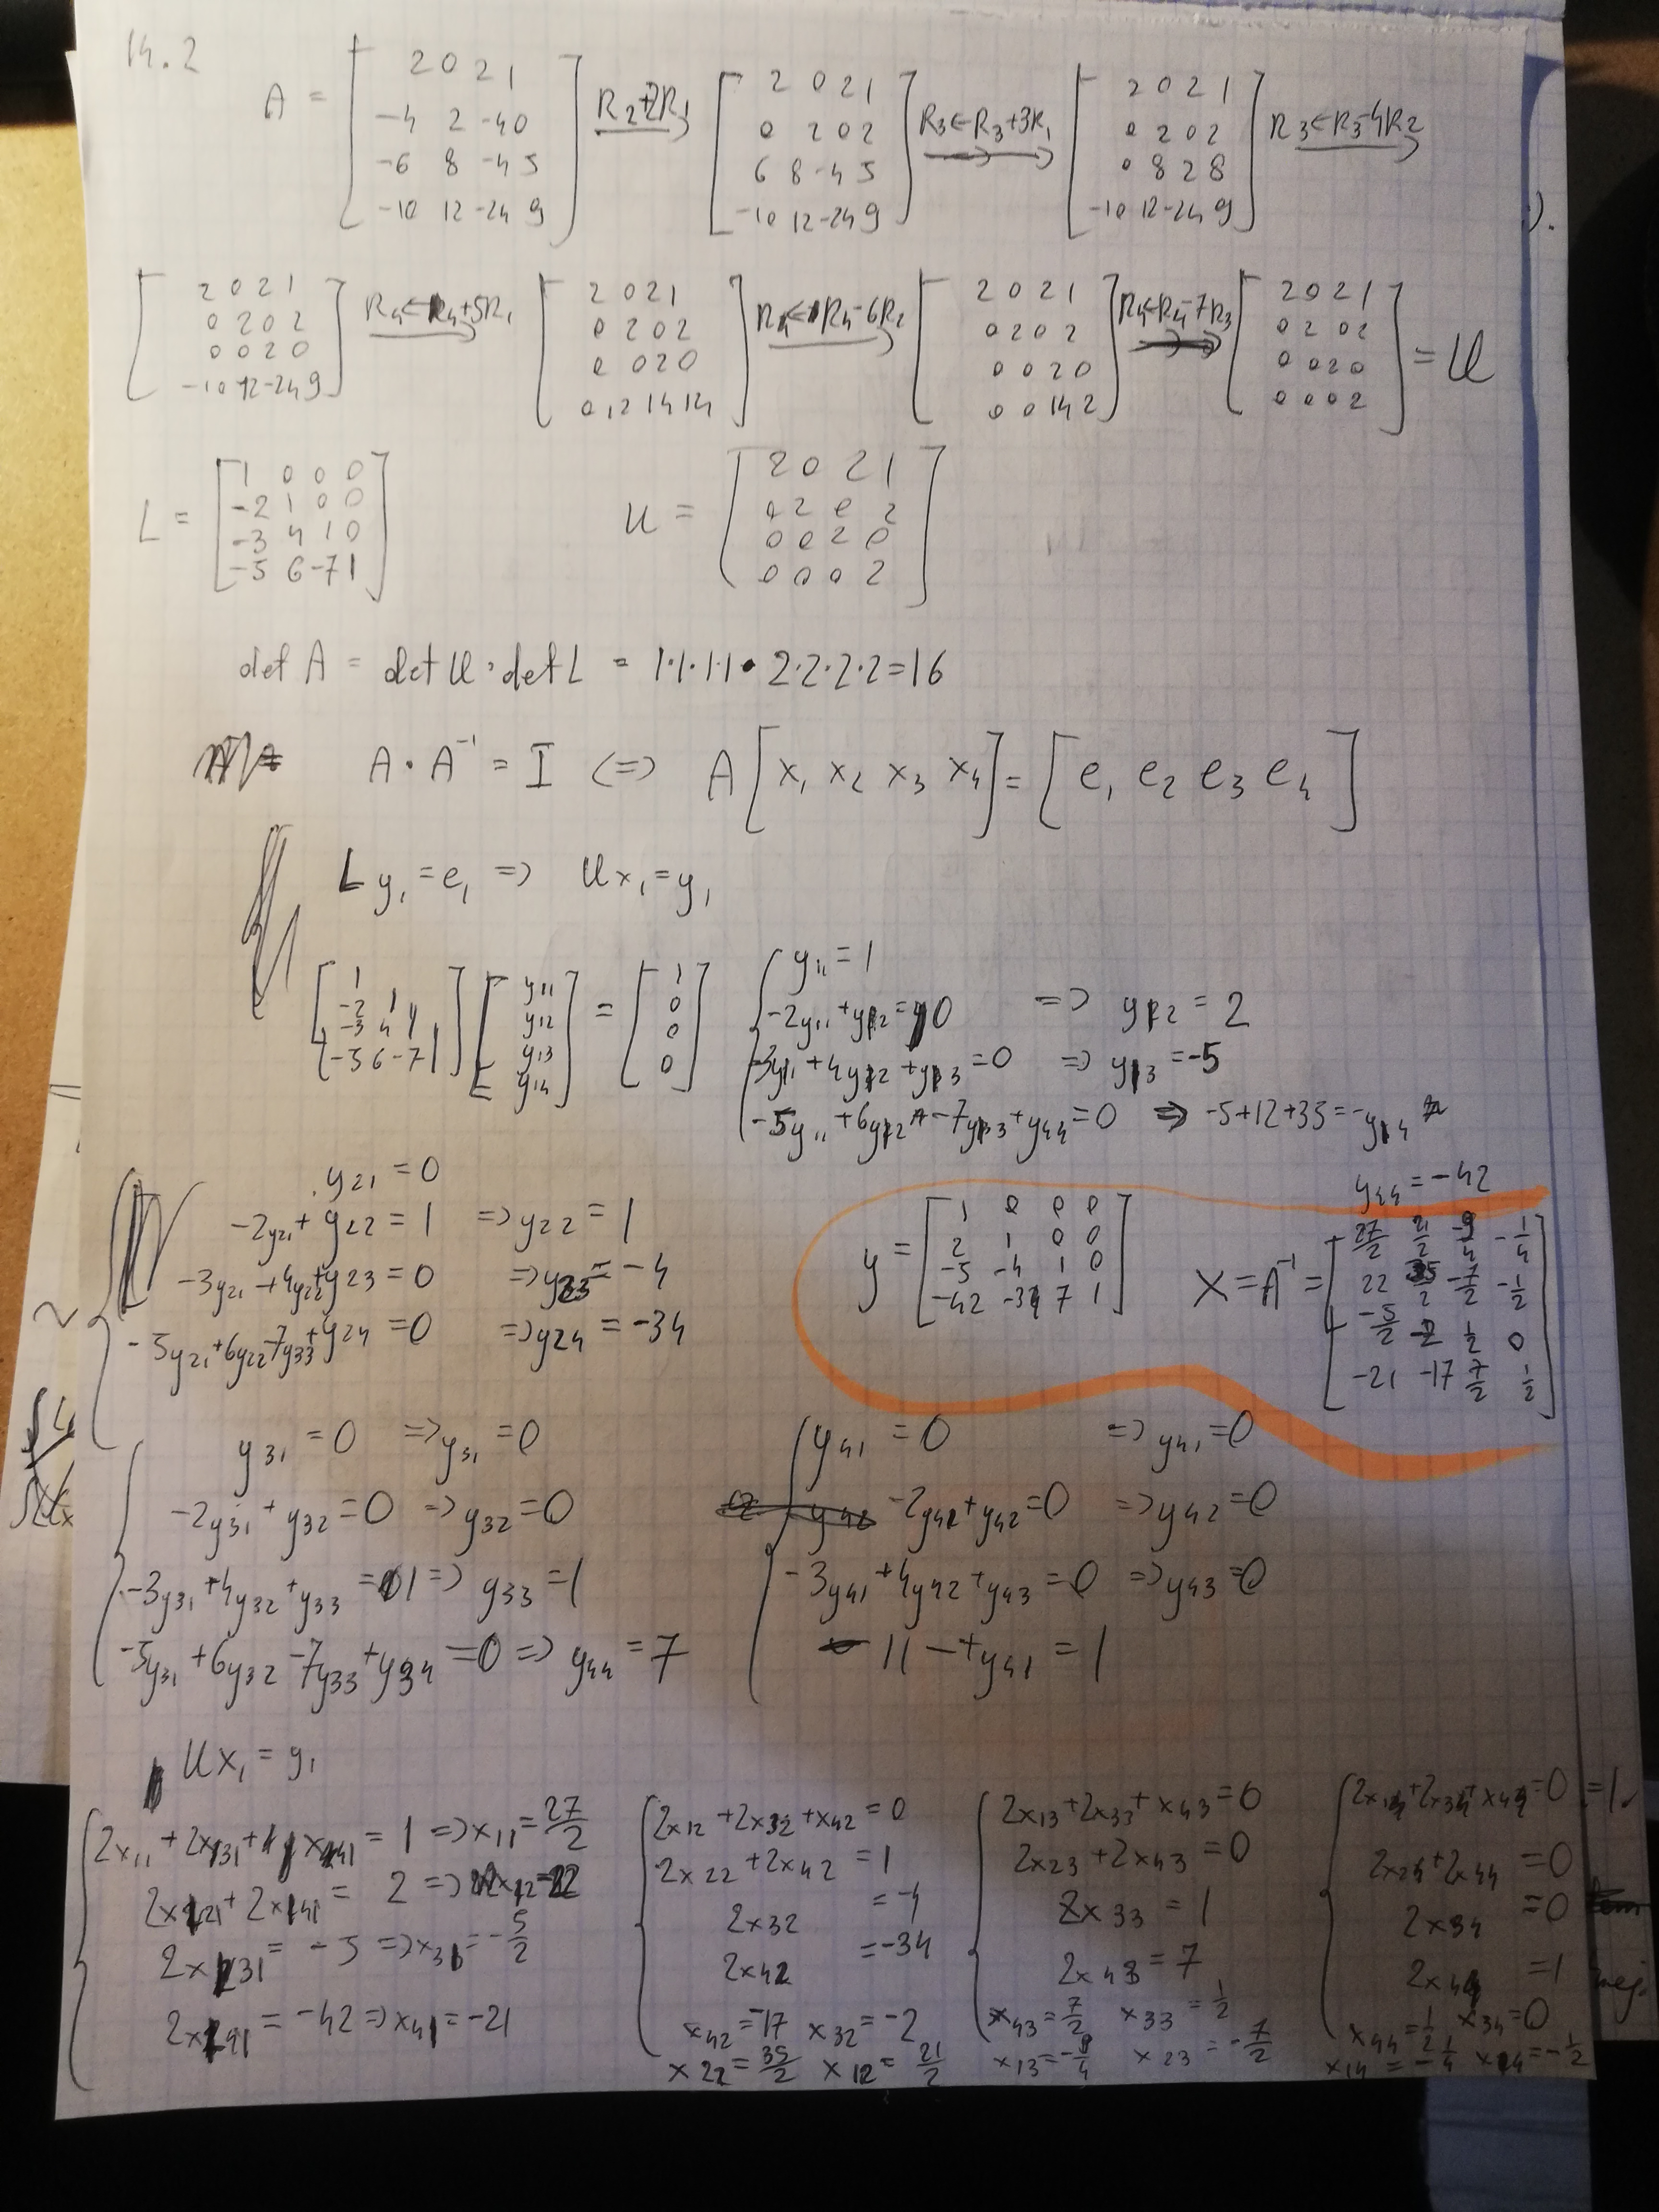 14.2
A = [2 0 2 1; -4 2 -4 0; -6 8 -4 5; -10 12 -24 9] R2+2R1 → [2 0 2 1; 0 2 0 2; 6 8 -4 5; -10 12 -24 9] R3←R3+3R1 → [2 0 2 1; 0 2 0 2; 0 8 2 8; -10 12 -24 9] R3←R3-4R2 →
[2 0 2 1; 0 2 0 2; 0 0 2 0; -10 12 -24 9] R4←R4+5R1 → [2 0 2 1; 0 2 0 2; 0 0 2 0; 0 12 14 14] R4←R4-6R2 → [2 0 2 1; 0 2 0 2; 0 0 2 0; 0 0 14 2] R4←R4-7R3 → [2 0 2 1; 0 2 0 2; 0 0 2 0; 0 0 0 2] = U
L = [1 0 0 0; -2 1 0 0; -3 4 1 0; -5 6 -7 1] U = [2 0 2 1; 0 2 0 2; 0 0 2 0; 0 0 0 2]
det A = det U · det L = 1·1·1·1 · 2·2·2·2 = 16
A · A⁻¹ = I <=> A [x1 x2 x3 x4] = [e1 e2 e3 e4]
L y1 = e1 => U x1 = y1
[1; -2 1; -3 4 1; -5 6 -7 1] [y11; y12; y13; y14] = [1; 0; 0; 0]
y11 = 1
-2y11 + y12 = 0 => y12 = 2
-3y11 + 4y12 + y13 = 0 => y13 = -5
-5y11 + 6y12 - 7y13 + y44 = 0 => -5+12+35 = -y14
y44 = -42
y21 = 0
-2y21 + y22 = 1 => y22 = 1
-3y21 + 4y22 + y23 = 0 => y23 = -4
-5y21 + 6y22 - 7y33 + y24 = 0 => y24 = -34
y = [1 0 0 0; 2 1 0 0; -5 -4 1 0; -42 -34 7 1]
X = A⁻¹ = [27/2 21/2 -9/4 -1/4; 22 35/2 -7/2 -1/2; -5/2 -2 1/2 0; -21 -17 7/2 1/2]
y31 = 0 => y31 = 0
-2y31 + y32 = 0 => y32 = 0
-3y31 + 4y32 + y33 = 1 => y33 = 1
-5y31 + 6y32 - 7y33 + y34 = 0 => y44 = 7
y41 = 0 => y41 = 0
-2y41 + y42 = 0 => y42 = 0
-3y41 + 4y42 + y43 = 0 => y43 = 0
11 - + y41 = 1
U x1 = y1
2x11 + 2x31 + x41 = 1 => x11 = 27/2
2x21 + 2x41 = 2 => x12 = 22
2x31 = -5 => x31 = -5/2
2x41 = -42 => x41 = -21
2x12 + 2x32 + x42 = 0
2x22 + 2x42 = 1
2x32 = -4
2x42 = -34
x42 = -17 x32 = -2
x22 = 35/2 x12 = 21/2
2x13 + 2x33 + x43 = 0
2x23 + 2x43 = 0
2x33 = 1
2x43 = 7
x43 = 7/2 x33 = 1/2
x13 = -9/4 x23 = -7/2
2x14 + 2x34 + x44 = 0
2x24 + 2x44 = 0
2x34 = 0
2x44 = 1
x44 = 1/2 x34 = 0
x14 = -1/4 x24 = -1/2